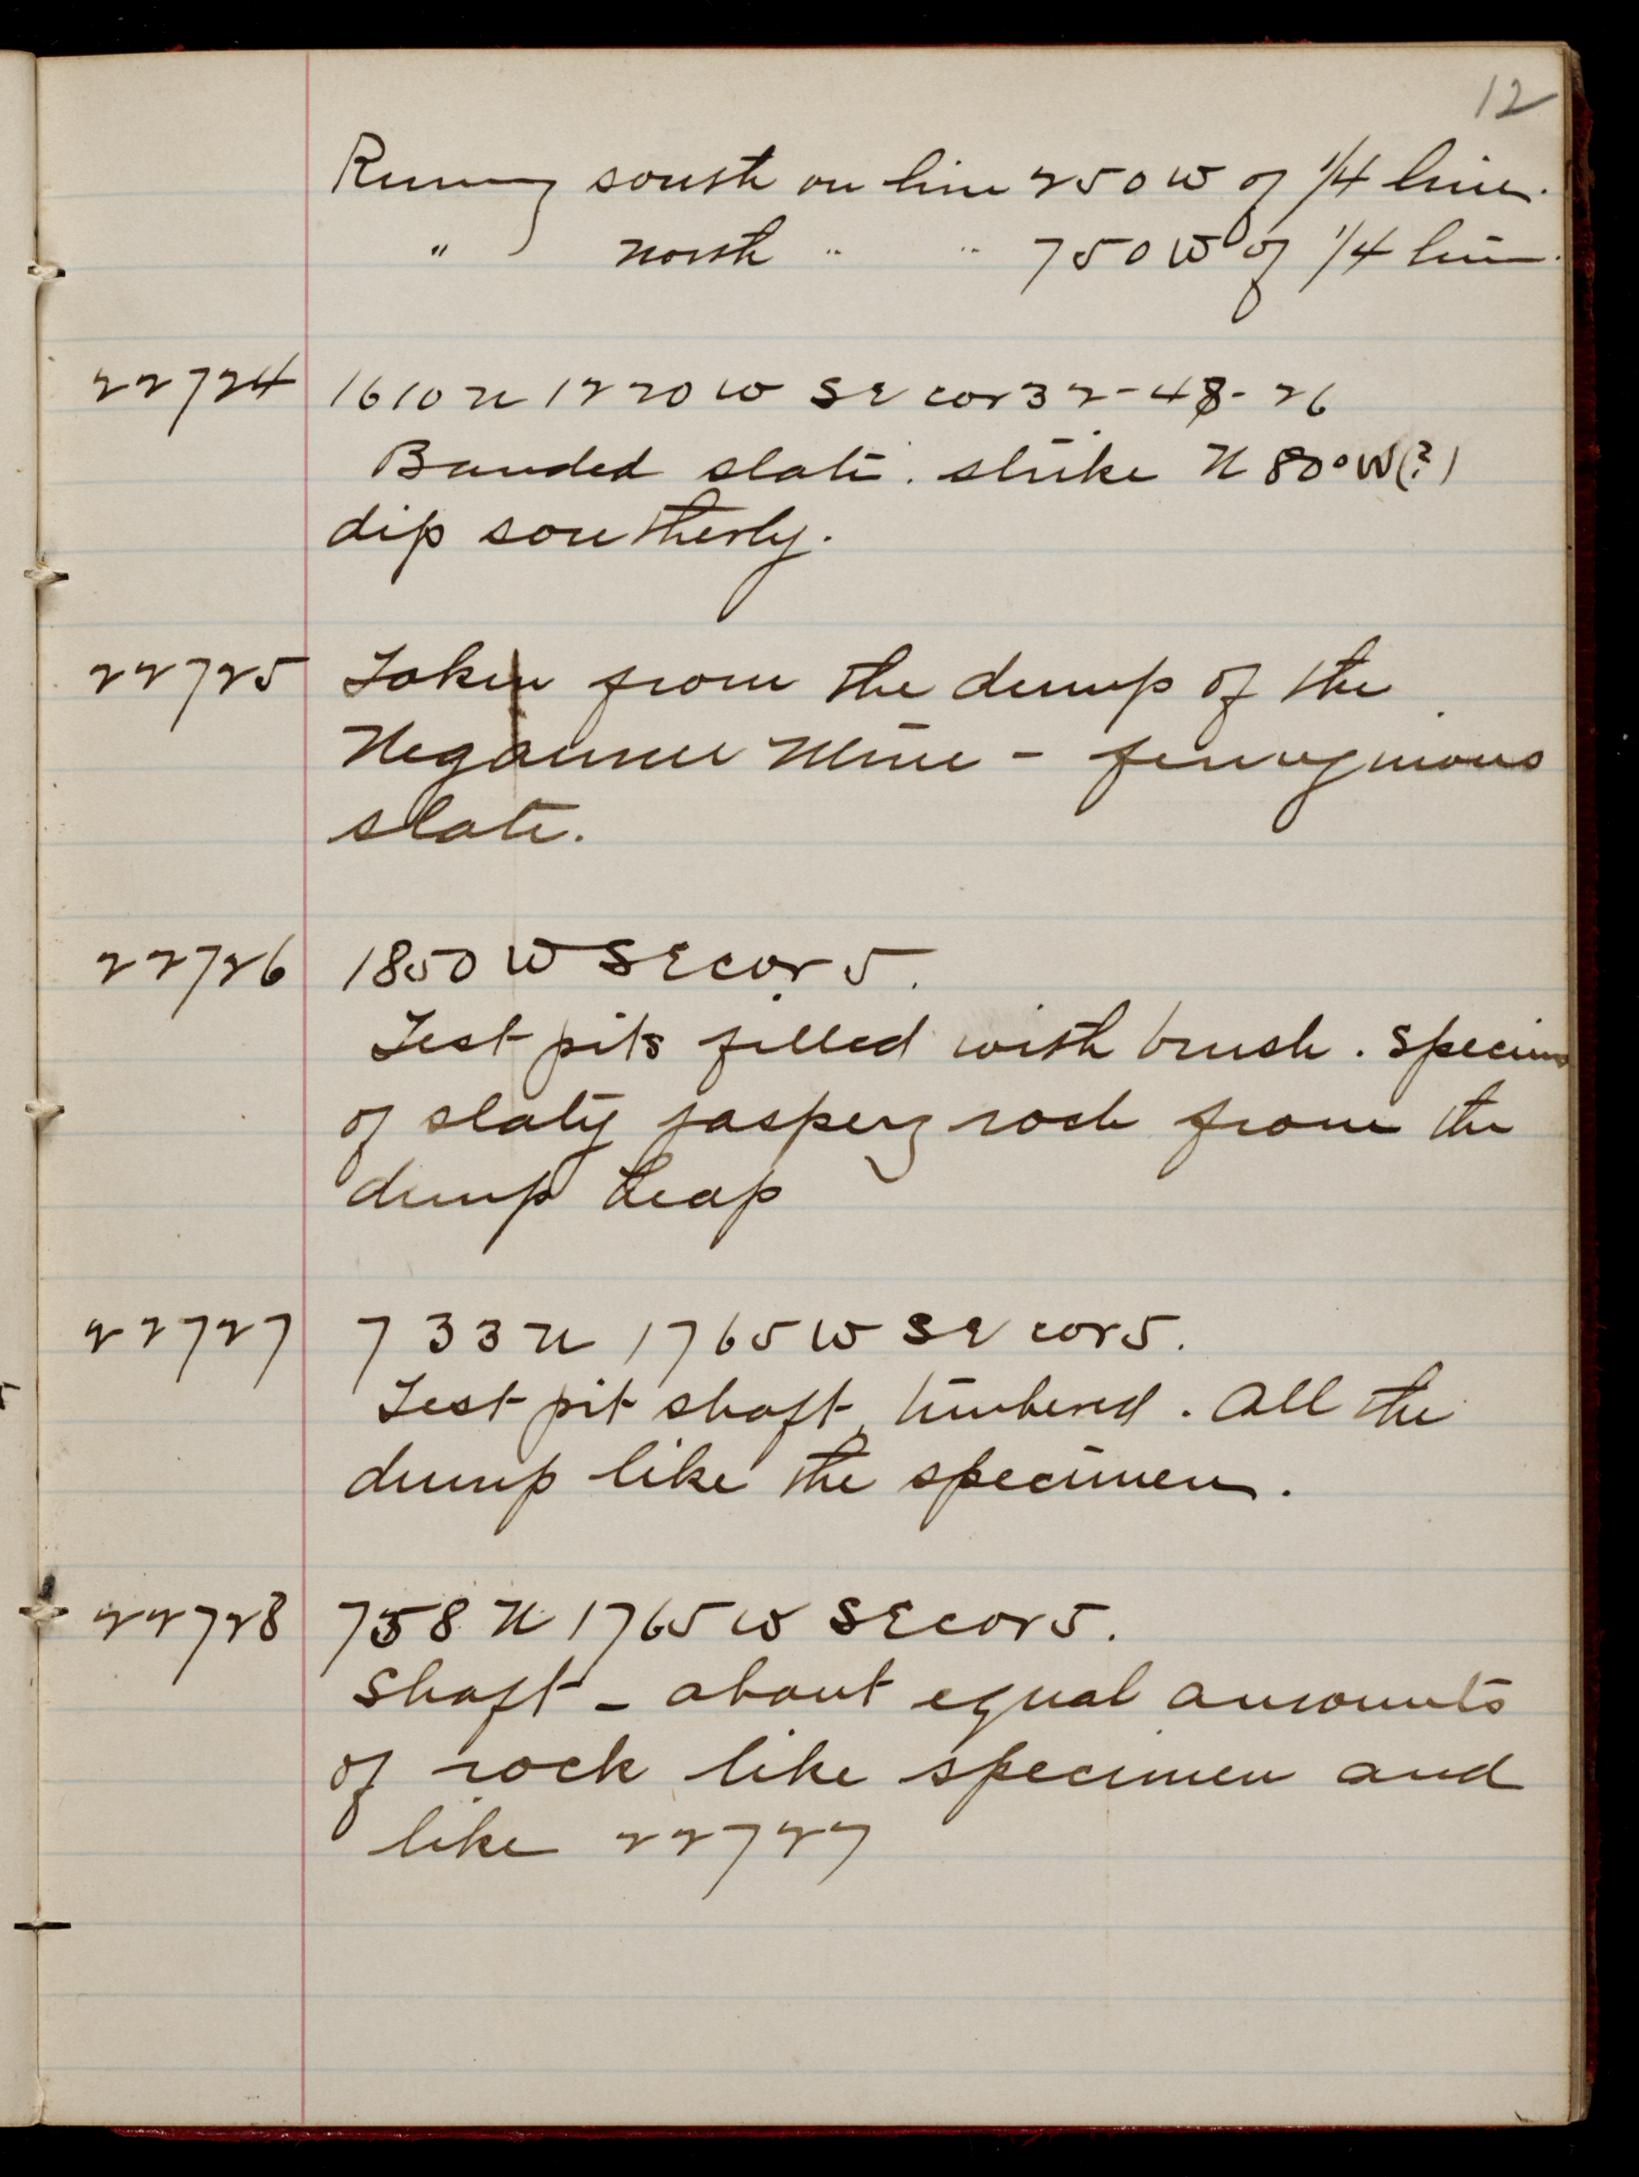 12
Running south on line 250 W of 1/4 line.
" north " " 750 W of 1/4 line.
22724 1610 N 1220 W SE cor 32-48-26
Banded slate. strike N 80° W (?)
dip southerly.
22725 Taken from the dump of the
Negaunee Mine - ferruginous
slate.
22726 1850 W SE cor 5.
Test pits filled with brush. Specimen
of slaty jaspery rock from the
dump heap
22727 733 N 1765 W SE cor 5.
Test pit shaft, timbered. All the
dump like the specimen.
22728 758 N 1765 W SE cor 5.
Shaft - about equal amounts
of rock like specimen and
like 22727